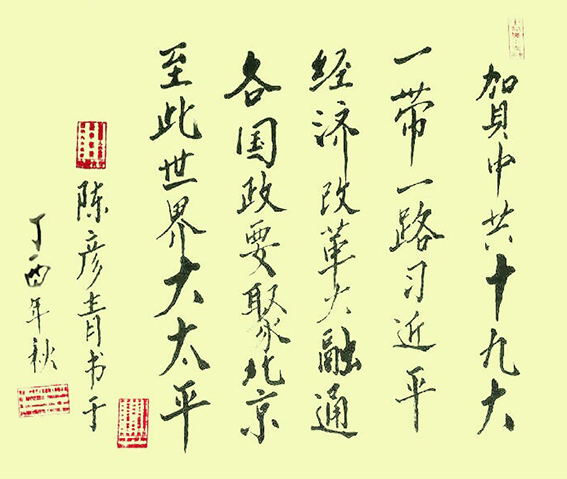 贺中共十九大
一带一路习近平
经济改革大融通
各国政要聚北京
至此世界大太平
陈彦青书于
丁酉年秋